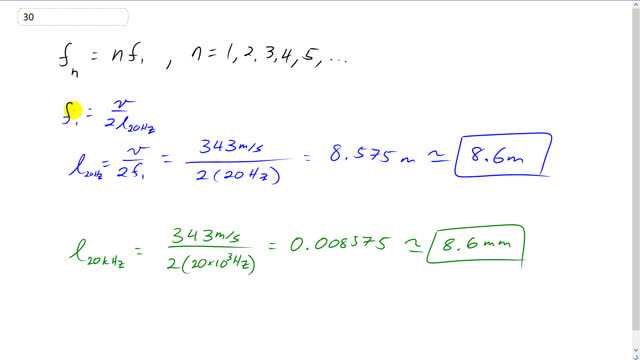 30
fₙ = n f₁ , n = 1, 2, 3, 4, 5, ...
f₁ = v / 2 l₂₀Hz
l₂₀Hz = v / 2f₁ = 343 m/s / 2(20 Hz) = 8.575 m ≃ 8.6 m
l₂₀kHz = 343 m/s / 2(20×10³Hz) = 0.008575 ≃ 8.6 mm